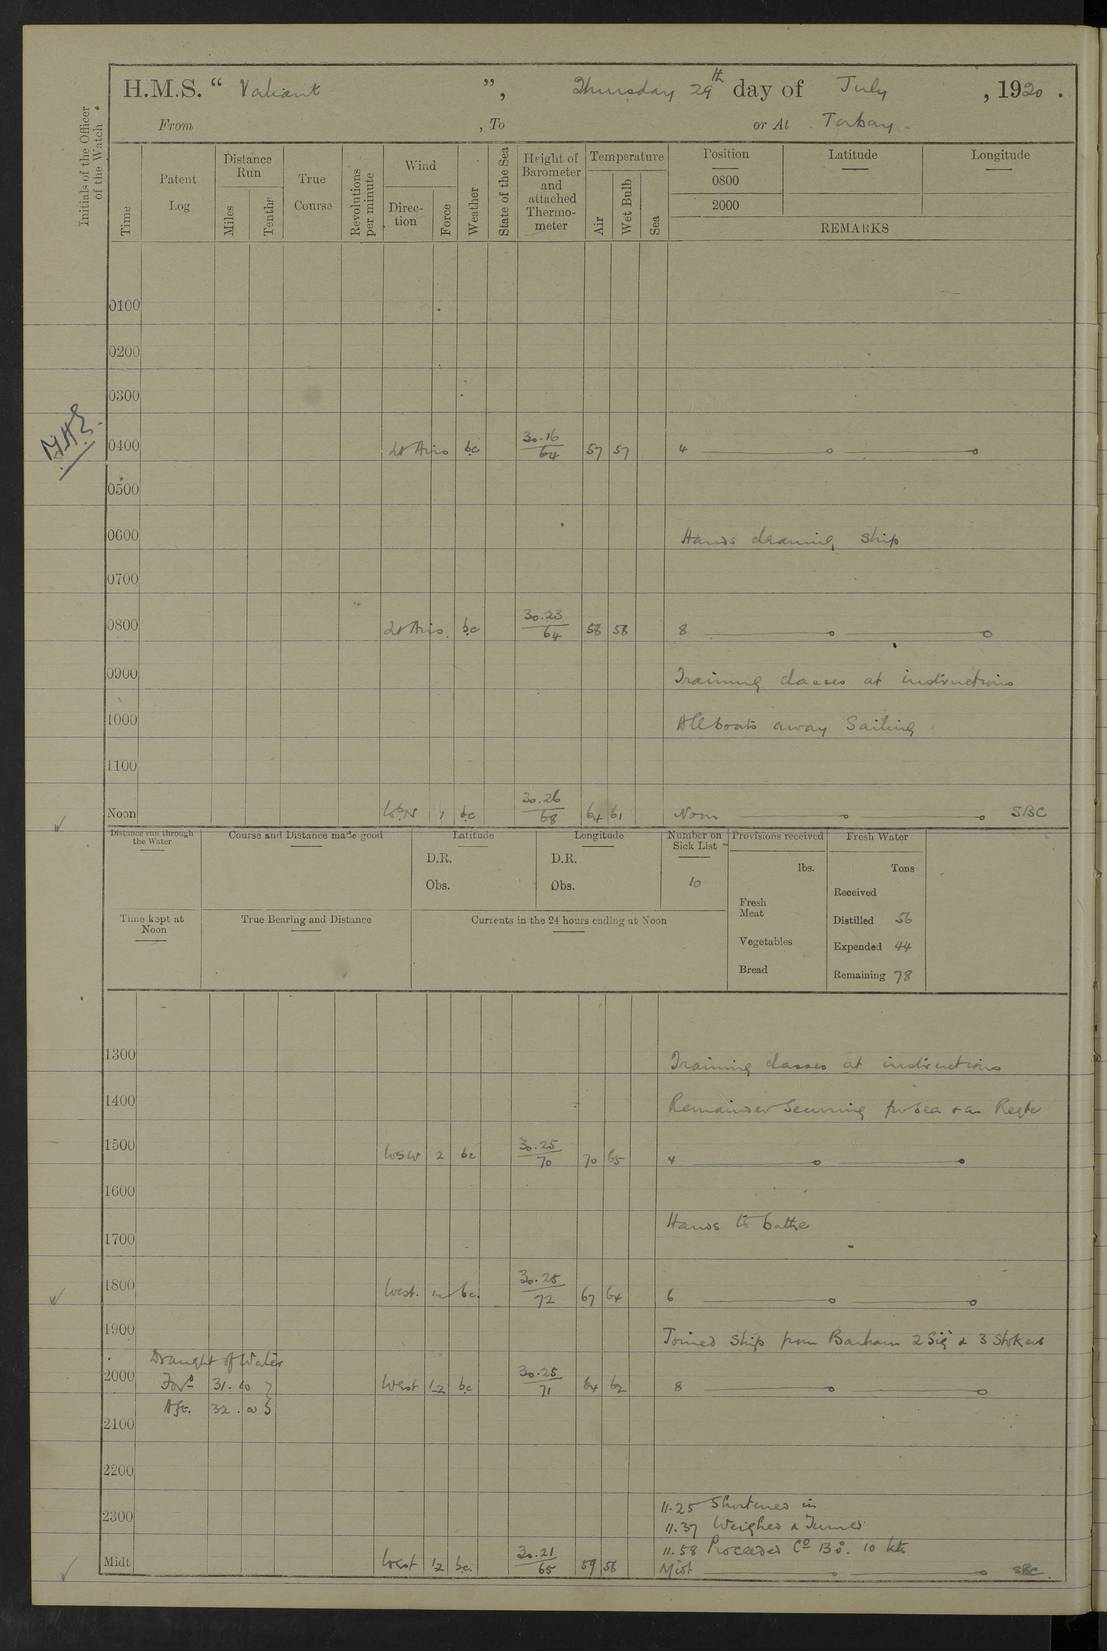 H.M.S. “ Valiant ”, Thursday 29th day of July, 1920.
From , To or At Torbay.
Initials of the Officer of the Watch
Time
Patent Log
Distance Run
Miles
Tenths
True Course
Revolutions per minute
Wind
Direction
Force
Weather
State of the Sea
Height of Barometer and attached Thermometer
Temperature
Air
Wet Bulb
Sea
Position
0800
2000
Latitude
Longitude
REMARKS
0100
0200
0300
0400 Lt Airs bc 30.16 64 57 57 4
0500
0600 Hands cleaning ship
0700
0800 Lt Airs bc 30.23 64 58 58 8
0900 Training classes at instructions
1000 All boats away Sailing
1100
Noon WbN 1 bc 30.26 68 64 61 Noon SBC
Distance run through the Water
Course and Distance made good
Latitude
D.R.
Obs.
Longitude
D.R.
Obs.
Number on Sick List
10
Provisions received
lbs.
Fresh Meat
Vegetables
Bread
Fresh Water
Tons
Received
Distilled 56
Expended 44
Remaining 78
Time kept at Noon
True Bearing and Distance
Currents in the 24 hours ending at Noon
1300 Training classes at instructions
1400 Remainder Securing for sea &
1500 WSW 2 bc 30.25 70 70 65 4
1600
1700 Hands to bathe
1800 West. bc. 30.25 72 67 64 6
1900 Joined ship from Barham 2 Sig & 3 Stokers
Draught of Water
2000 West 1-2 bc 30.25 71 64 62 8
Ford 31.10
Aft. 32.
2100
2200
11.25 Shortened in
2300
11.37 Weighed & Turned
11.58 Proceeded Co 10 kts
Midt West 1-2 bc. 30.21 65 59 58 Midt SBC